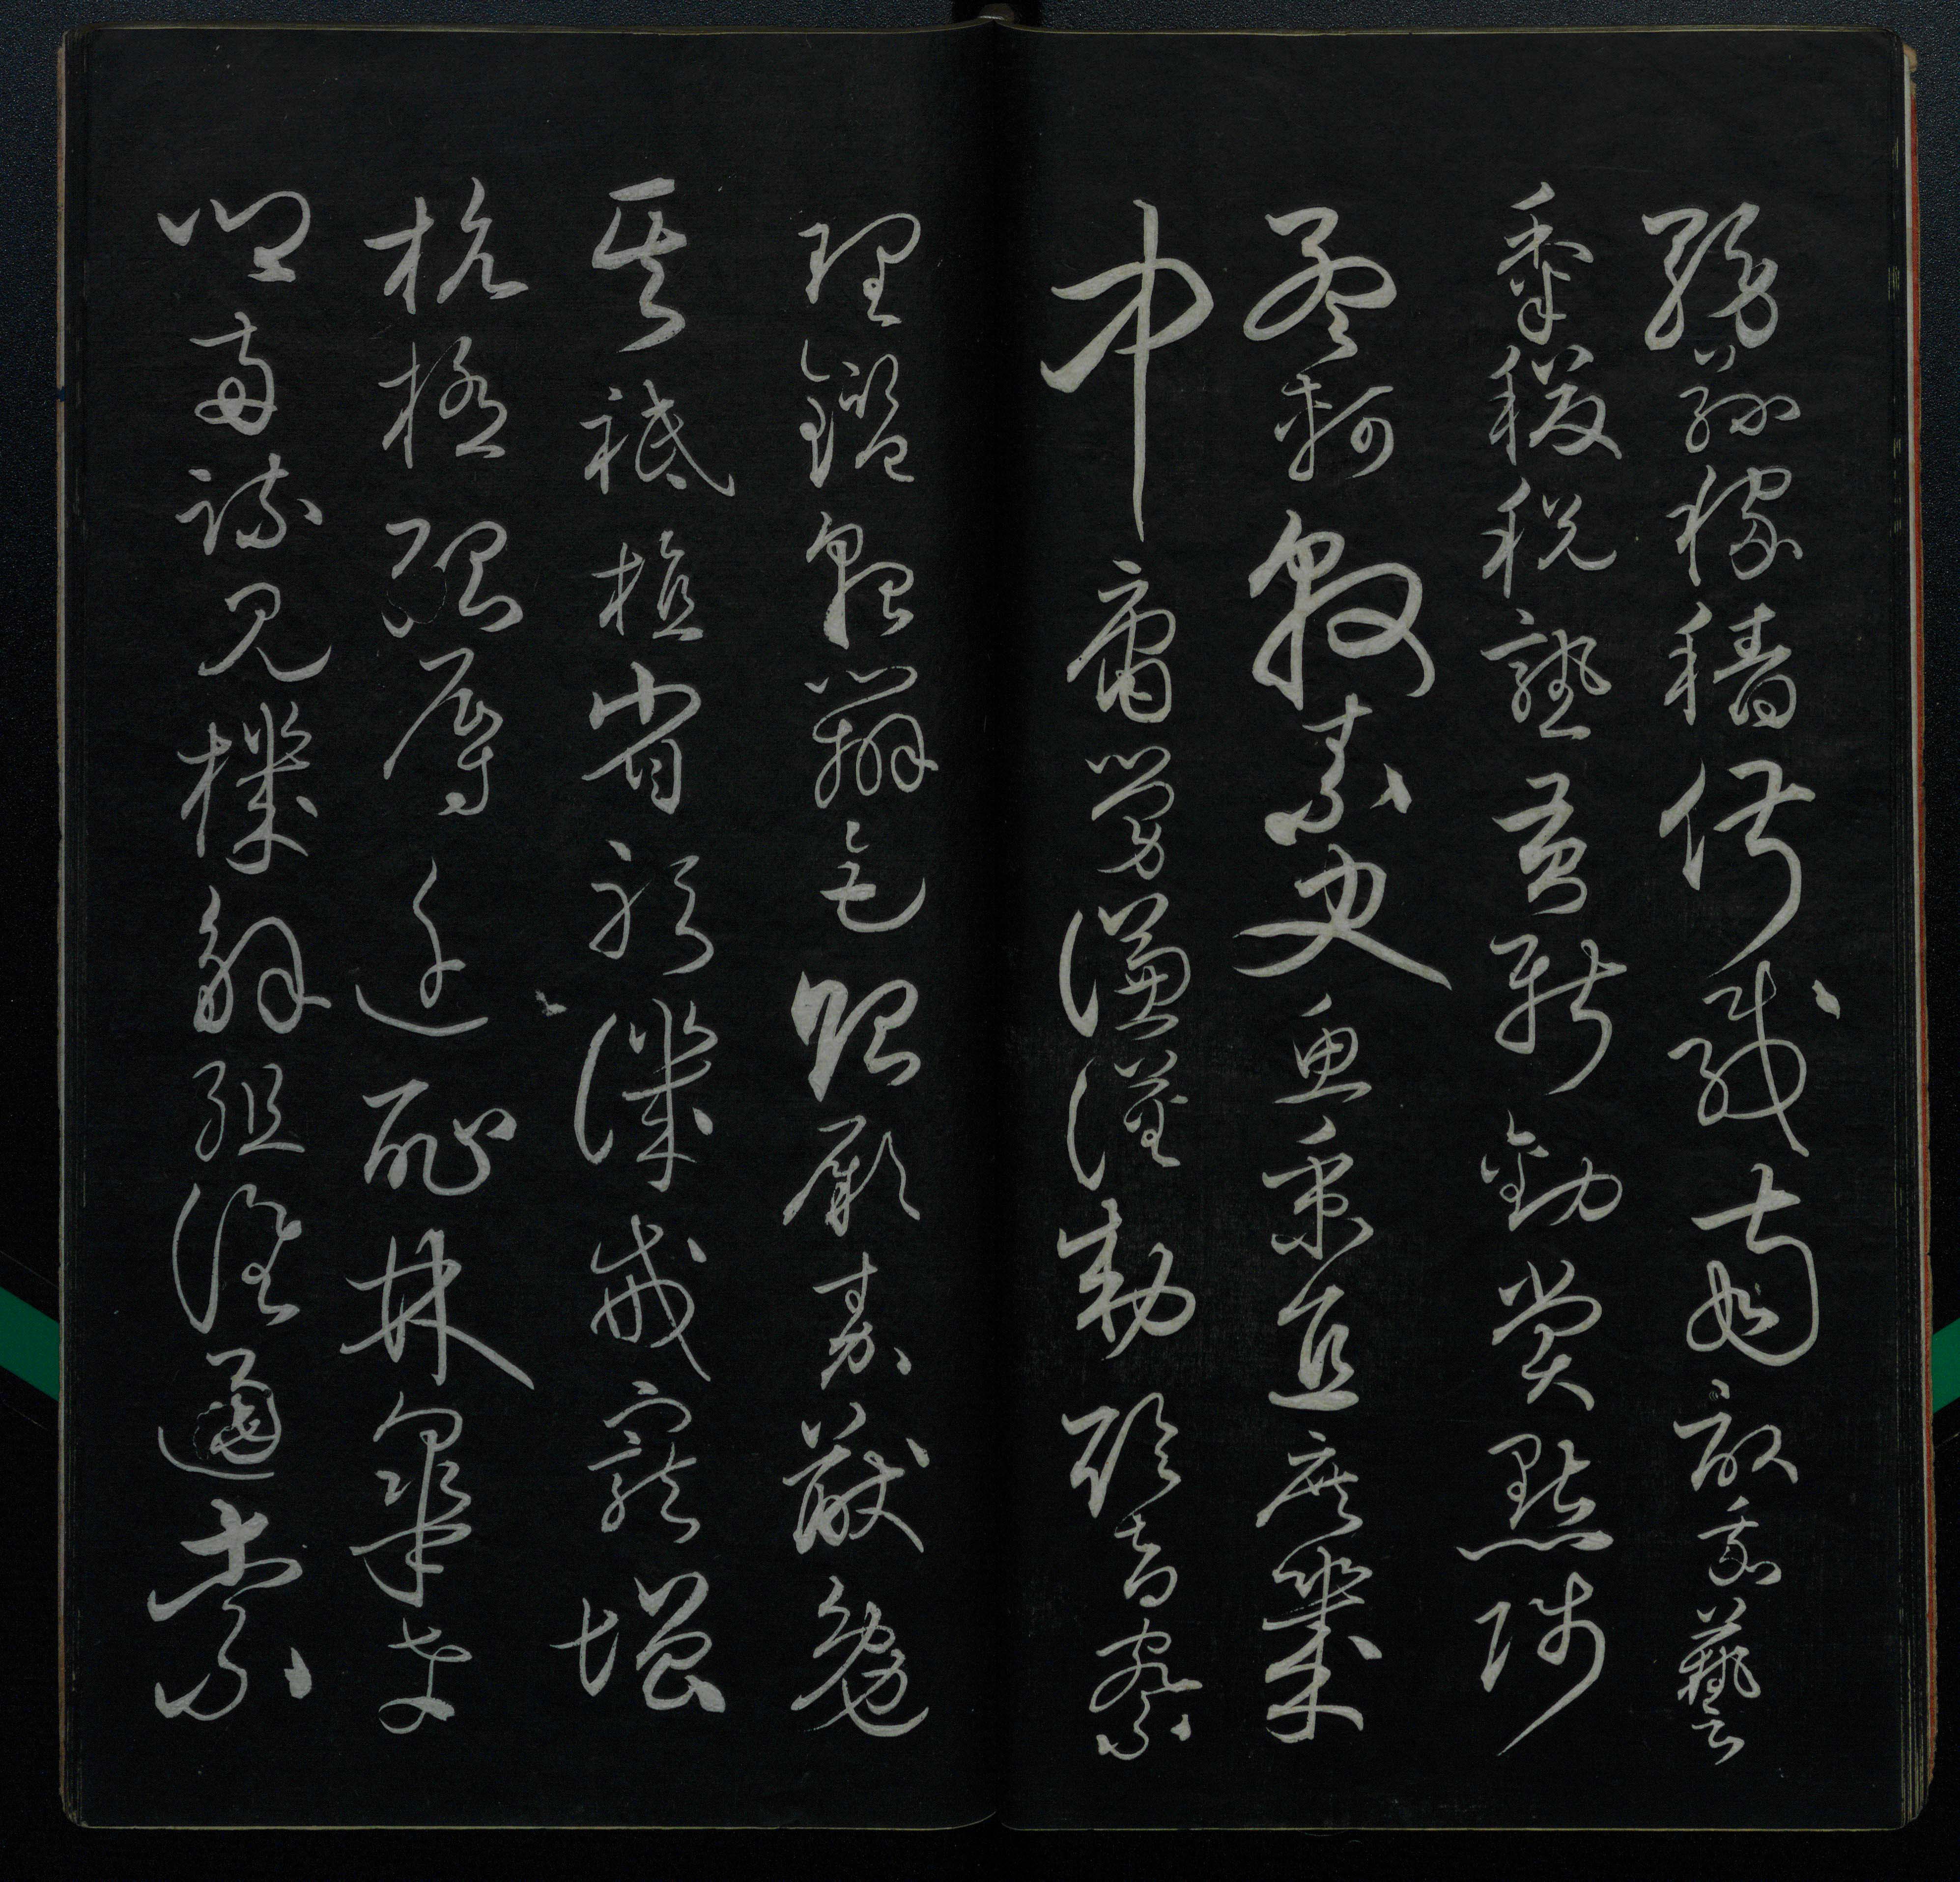 務茲稼穡俶載南畝我藝
黍稷稅熟貢新勸賞黜陟
孟軻敦素史魚秉直庶幾
中庸勞謙謹勅聆音察
理鑑貌辨色貽厥嘉猷勉
其祗植省躬譏戒寵增
抗極殆辱近恥林皋幸
即兩疏見機解組誰逼索